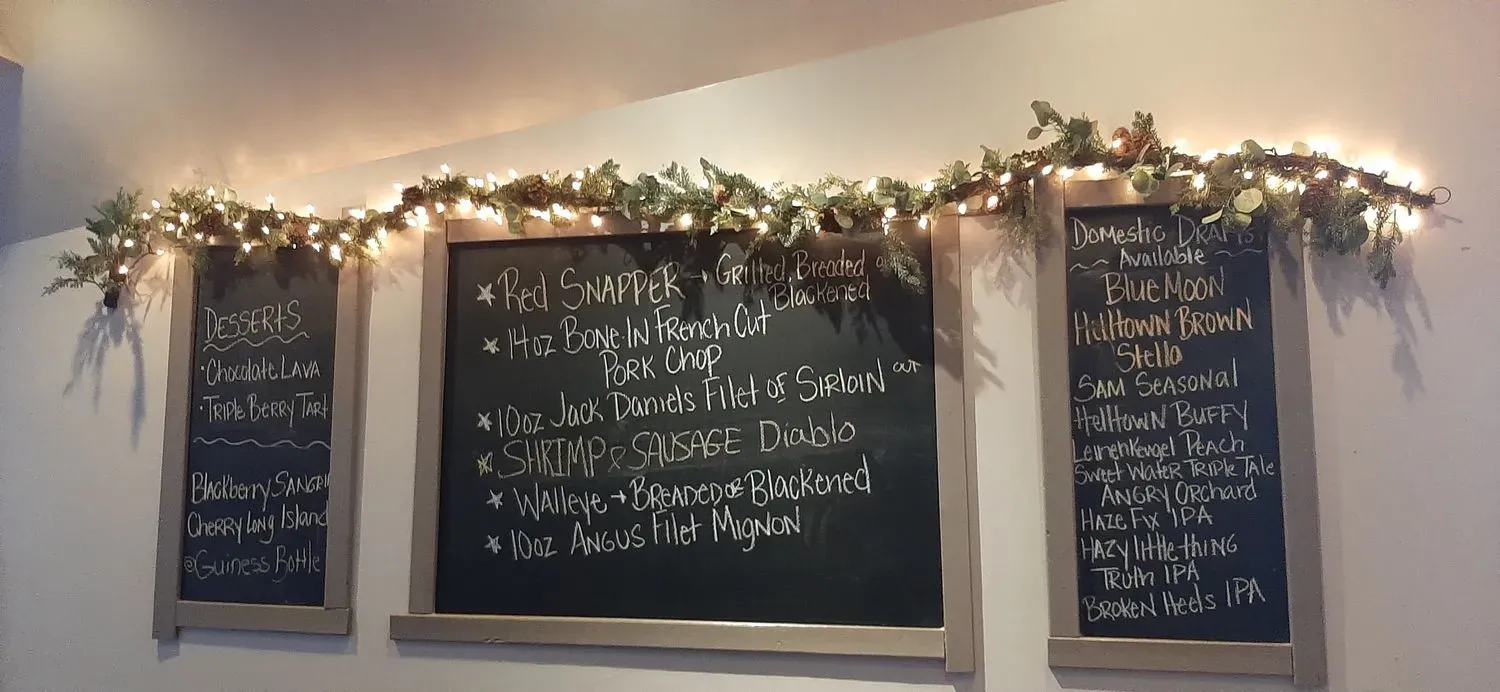 DESSERTS
·Chocolate LAVA
·TRIPLE BERRY TART
Blackberry SANGRIA
CHERRY Long Island
@Guiness Bottle
Red SNAPPER → Grilled, Breaded or
Blackened
14oz BONE-IN FRENCH CUT
PORK CHOP
10oz Jack Daniels Filet OF SIRLOIN CUT
SHRIMP & SAUSAGE Diablo
Walleye → BREADED OR Blackened
10oz ANGUS Filet MIGNON
Domestic DRAFTS
Available
Blue MOON
HellTOWN BROWN
Stella
SAM SEASONAL
HellTOWN BUFFY
LeinenKeugel PEACH
Sweet WATER TRIPLE TALE
ANGRY ORCHARD
HAZE FIX IPA
HAZY little THING
TRUTH IPA
BROKEN Heels IPA